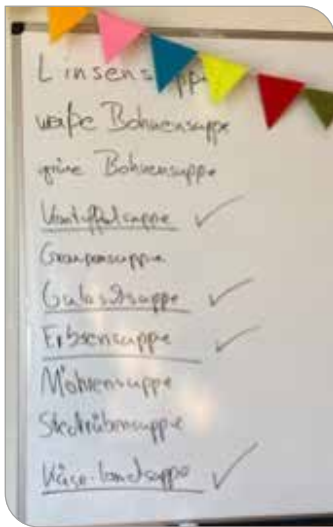 Linsensuppe
weiße Bohnensuppe
grüne Bohnensuppe
Kartoffelsuppe ✓
Graupensuppe
Gulaschsuppe ✓
Erbsensuppe ✓
Möhrensuppe
Steckrübensuppe
Käse-Lauchsuppe ✓